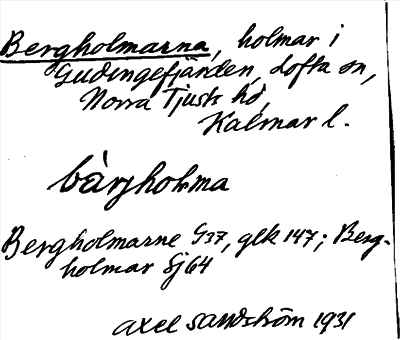 Bergholmarna, holmar i
Gudingefjärden, Lofta sn,
Norra Tjusts hd,
Kalmar l.
bàrjholma
Bergholmarne G37, glk 147; Berg-
holmar Sj64
Axel Sandström 1931